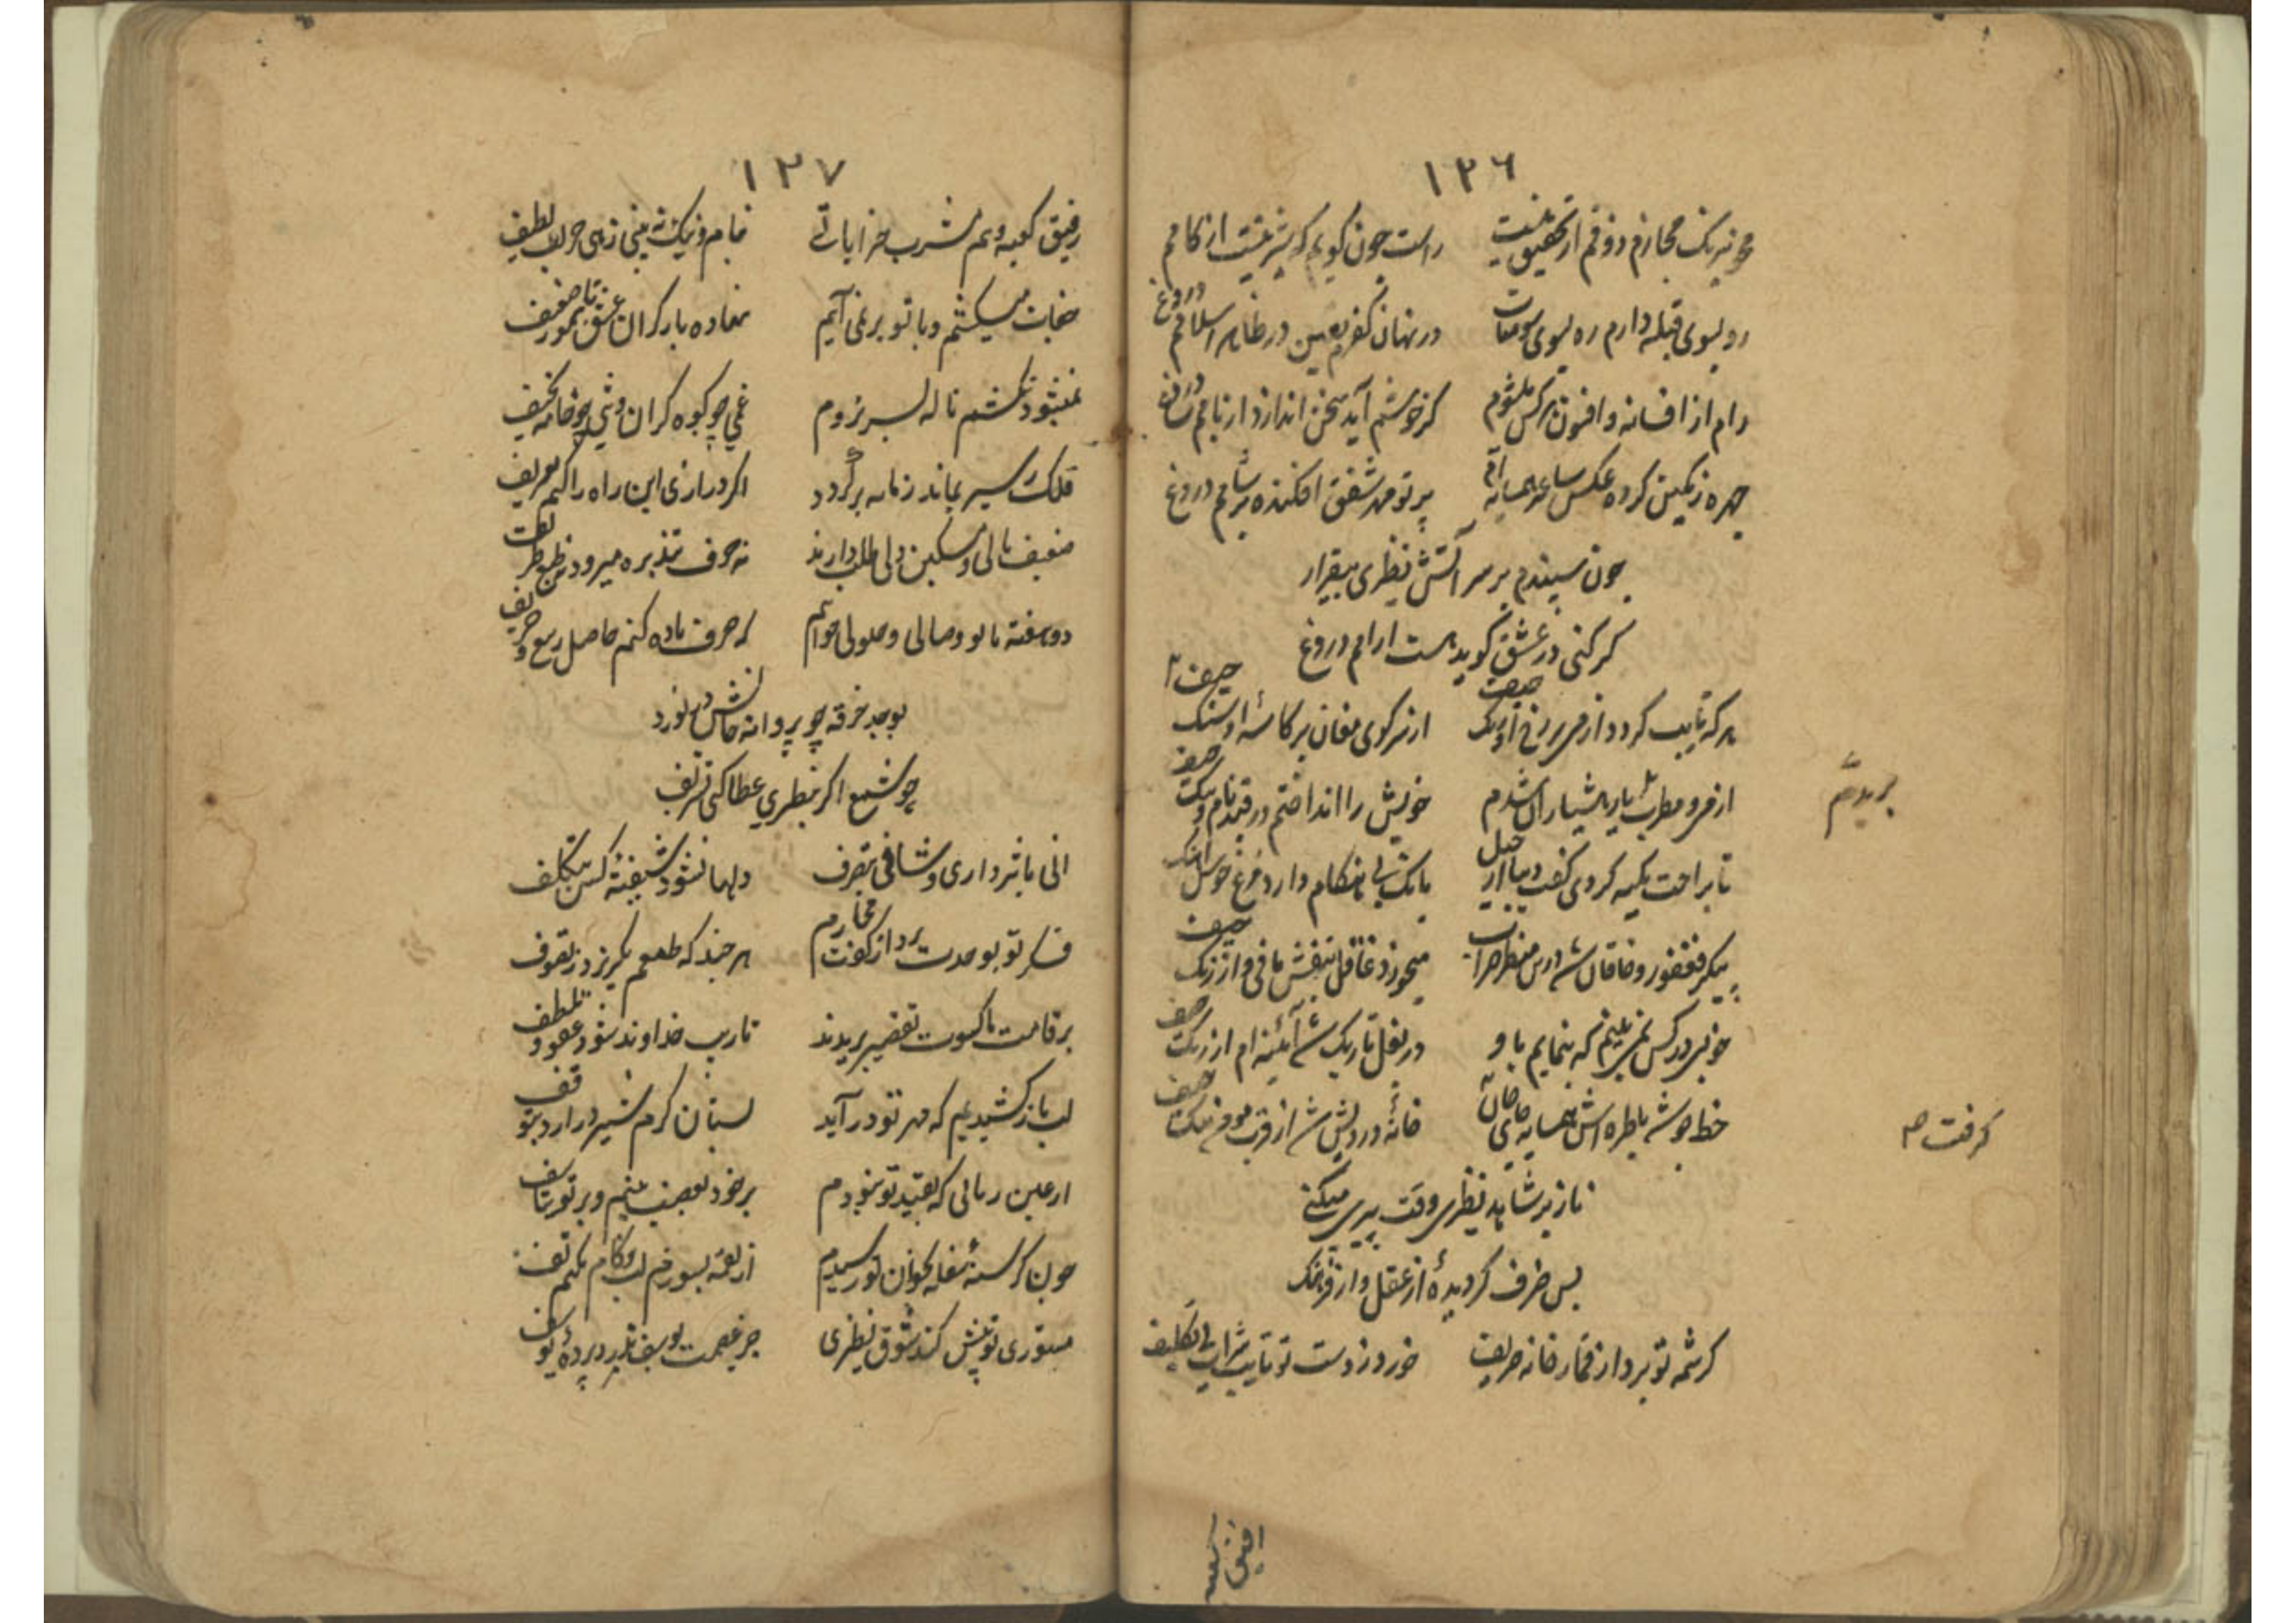 ١٢٦
محو نیرنک مجازم ذوقم از تحقیق نیست راست چون کویم که شیر نیست از کامم دروغ
رو بسوی قبله دارم ره بسوی سومنات در نهان کفرم ببین در ظاهر اسلامم دروغ
رام از افسانه و افسون هر کس میشوم کر خوشم آید سخن اندازد از بامم دروغ
چهره رنکین کرده عکس ساغر همسایه ام پرتو مهر شفق افکنده بر شامم دروغ
چون سپندم بر سر آتش نظیری بیقرار
کر کنی در عشق کوید هست آرامم دروغ
هر که تایب کردد از می بر رخ او رنک حیف از سر کوی مغان بر کاسهٔ او سنک حیف
از می و مطرب خویش را انداختم در قید نام و ننک حیف
بریدم
تا براحت تکیه کردی کفت بانک بی هنکام دارد مرغ خوش آهنک حیف
پیکر فغفور و خاقان شد درین منظر خراب میخورد غافل بنقش مانی و ارژنک حیف
خوبی در کس نمی بینم که بنمایم باو در بغل تاریک شد آئینه ام از زنک حیف
خط خوشه با طره اش همسایه جای خال خانهٔ درویش شد از قرب تنک حیف
کرفت صح
ناز بر شاهد نظیری وقت پیری میکنی
بس خرف کردیدهٔ از عقل و از فرهنک حیف
کرشمه تو برد از قمار خانه حریف خورد ز دست تو تایب شراب بی تکلیف
رفیق کعبه
١٢٧
رفیق کعبه و هم مشرب خراباتی بنام و نیک نه بینی زهی حریف لطیف
جفات میکشم و با تو بر نمی آیم نهاده بار کران عشق تا بمور ضعیف
نمیشود نکشم ناله بسر نروم غمی چو کوه کران و تنی چو خامه نحیف
فلک ز سیر بماند زمانه بر کردد اکر درازی این راه را کنم تعریف
ضعیف نالی و مسکین دلی طلب دارند نه حرف
دو هفته با تو وصالی و حلولی خواهم که صرف باده کنم حاصل ربیع و خریف
بوجد خرقه چو پروانه
چو شمع اکر نظیری عطا کنی تشریف
انی باثر داری و شافی بتصرف دلها نشود شیفتهٔ کس بتکلف
فکر تو بوحدت برد از کثرت مجازم هر چند که طبعم بکریزد ز تصوف
بر قامت ما کسوت تقصیر بریدند تا ربّ خداوند شود عفو و تلطف
لب باز کشیدیم که مهر تو در آید پستان کرم شیر در آرد بتوقف
از عین زمانی که بقید تو نبودم بر خود بعجب بینم و بر تو بتاسف
چون کرسنهٔ سفله بخوان تو رسیدیم از لقمه بسوزم لب و کام نکنم تف
مستوری تو پیش کند شوق نظیری جز عصمت یوسف ندرد پردهٔ یوسف